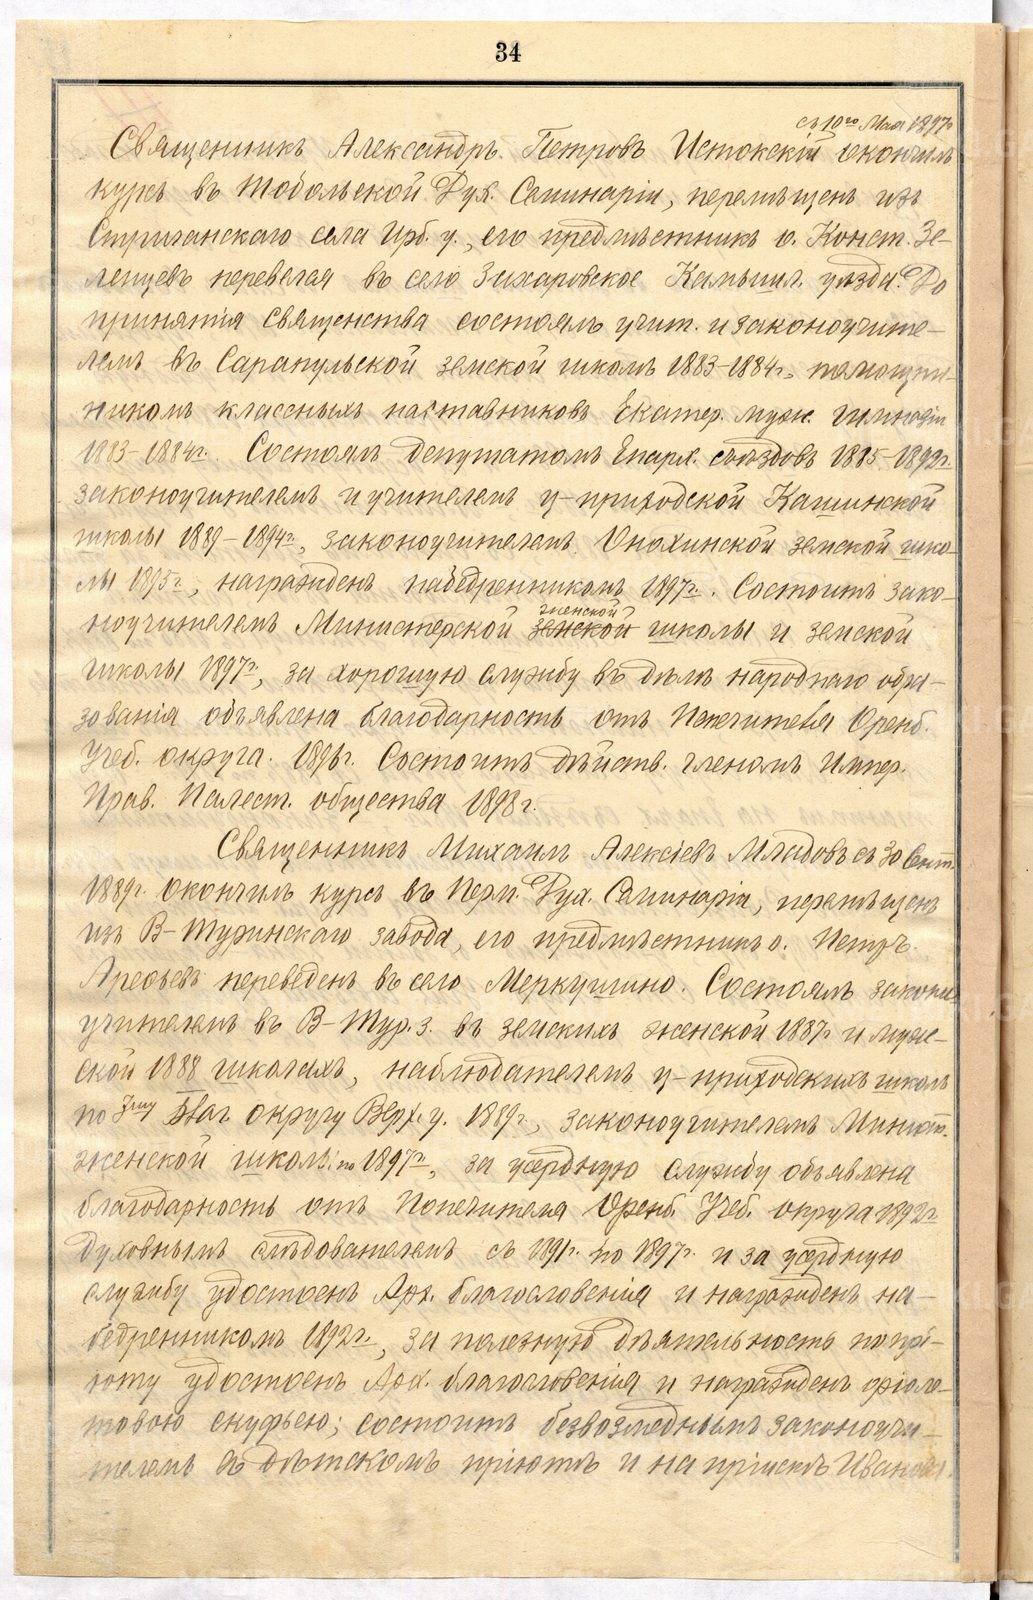 34
съ 10го Мая 1897г.
Священникъ Александръ Петровъ Истокскій окончилъ
курсъ въ Тобольской Дух. Семинаріи, перемѣщенъ изъ
Стриганскаго села Ирб. у., его предмѣстникъ о. Конст. Зе-
ленцевъ перевелся въ село Захаровское Камышл. уѣзда. До
принятія священства состоялъ учит. и законоучите-
лемъ въ Сарапульской земской школѣ 1883-1884г., помощни-
никомъ классныхъ наставниковъ Екатер. мужс. гимназіи
1883-1884г. Состоялъ депутатомъ Епарх. съѣздовъ 1885-1892г.
законоучителемъ и учителемъ ц-приходской Кашинской
школы 1889-1894г., законоучителемъ Онохинской земской шко-
лы 1895г., награжденъ набедренникомъ 1897г. Состоитъ зако-
женской
ноучителемъ Министерской земской школы и земской
школы 1897г., за хорошую службу въ дѣлѣ народнаго обра-
зованія объявлена благодарность отъ Попечителя Оренб.
Учеб. округа. 1896г. Состоитъ дѣйств. членомъ Импер.
Прав. Палест. общества 1898г.
Священникъ Михаилъ Алексѣевъ Младовъ съ 30 Сент.
1889г. окончилъ курсъ въ Перм. Дух. Семинаріи, перемѣщенъ
изъ В-Туринскаго завода, его предмѣстникъ о. Петръ
Арефьевъ переведенъ въ село Меркушино. Состоялъ законо
учителемъ въ В-Тур. з. въ земскихъ женской 1887г. и муже-
ской 1888 школахъ, наблюдателемъ ц-приходскихъ школъ
по 3му благ округу Верх. у. 1889г., законоучителемъ Минист.
женской школы по 1897г., за усердную службу объявлена
благодарность отъ Попечителя Оренб. Учеб. округа 1892г.
духовнымъ слѣдователемъ съ 1891г. по 1897г. и за усердную
службу удостоенъ Арх. благословенія и награжденъ на-
бедренникомъ 1892г., за полезную дѣятельность по прі-
юту удостоенъ Арх. благословенія и награжденъ фіоле-
товою скуфьею; состоитъ безвозмезднымъ законоучи-
телемъ въ дѣтскомъ пріютѣ и на пріискѣ